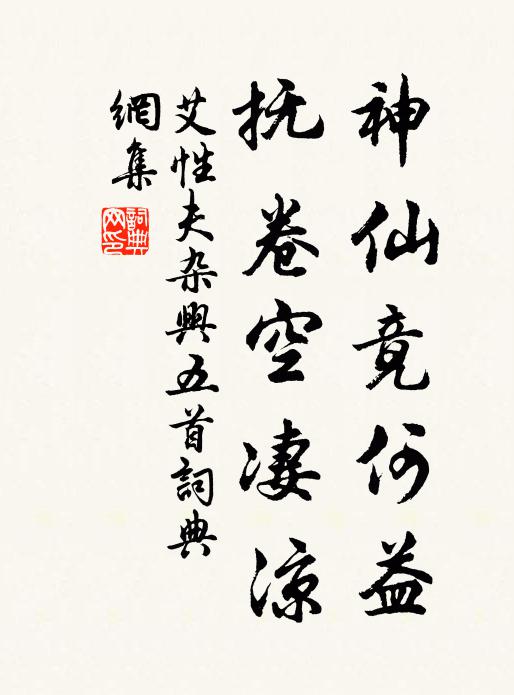 神仙竟何益
抚卷空凄凉
艾性夫杂興五首詞典
網集
詞典网印